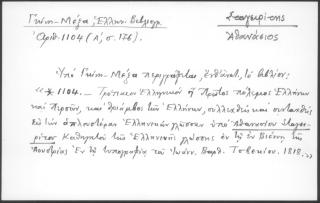 Γκίνη - Μέξα Ἑλλην. Βιβλιογρ.
Ἀριθ. 1104 (Α', σ. 176).
Σταγειρίτης
Ἀθανάσιος
Ὑπὸ Γκίνη - Μέξα περιγράφεται, ἐνθ' ἀνωτ., τὸ βιβλίον:
«* 1104. — Ἑλληνικὸν ἢ Πρῶτος πόλεμος Ἑλλήνων
καὶ Περσῶν, καὶ θρίαμβοι τῶν Ἑλλήνων, συλλεχθεὶς καὶ συνταχθεὶς
εἰς τὴν ἁπλουστέραν Ἑλληνικὴν γλῶσσαν ὑπὸ Ἀθανασίου Σταγει-
ρίτου Καθηγητοῦ τῆς Ἑλληνικῆς γλώσσης ἐν τῇ ἐν Βιέννῃ τῆς
Αουστρίας Ἐν τῇ τυπογραφίᾳ τοῦ Ἰωάνν. Βαρθ. Τσβεκίου. 1818.